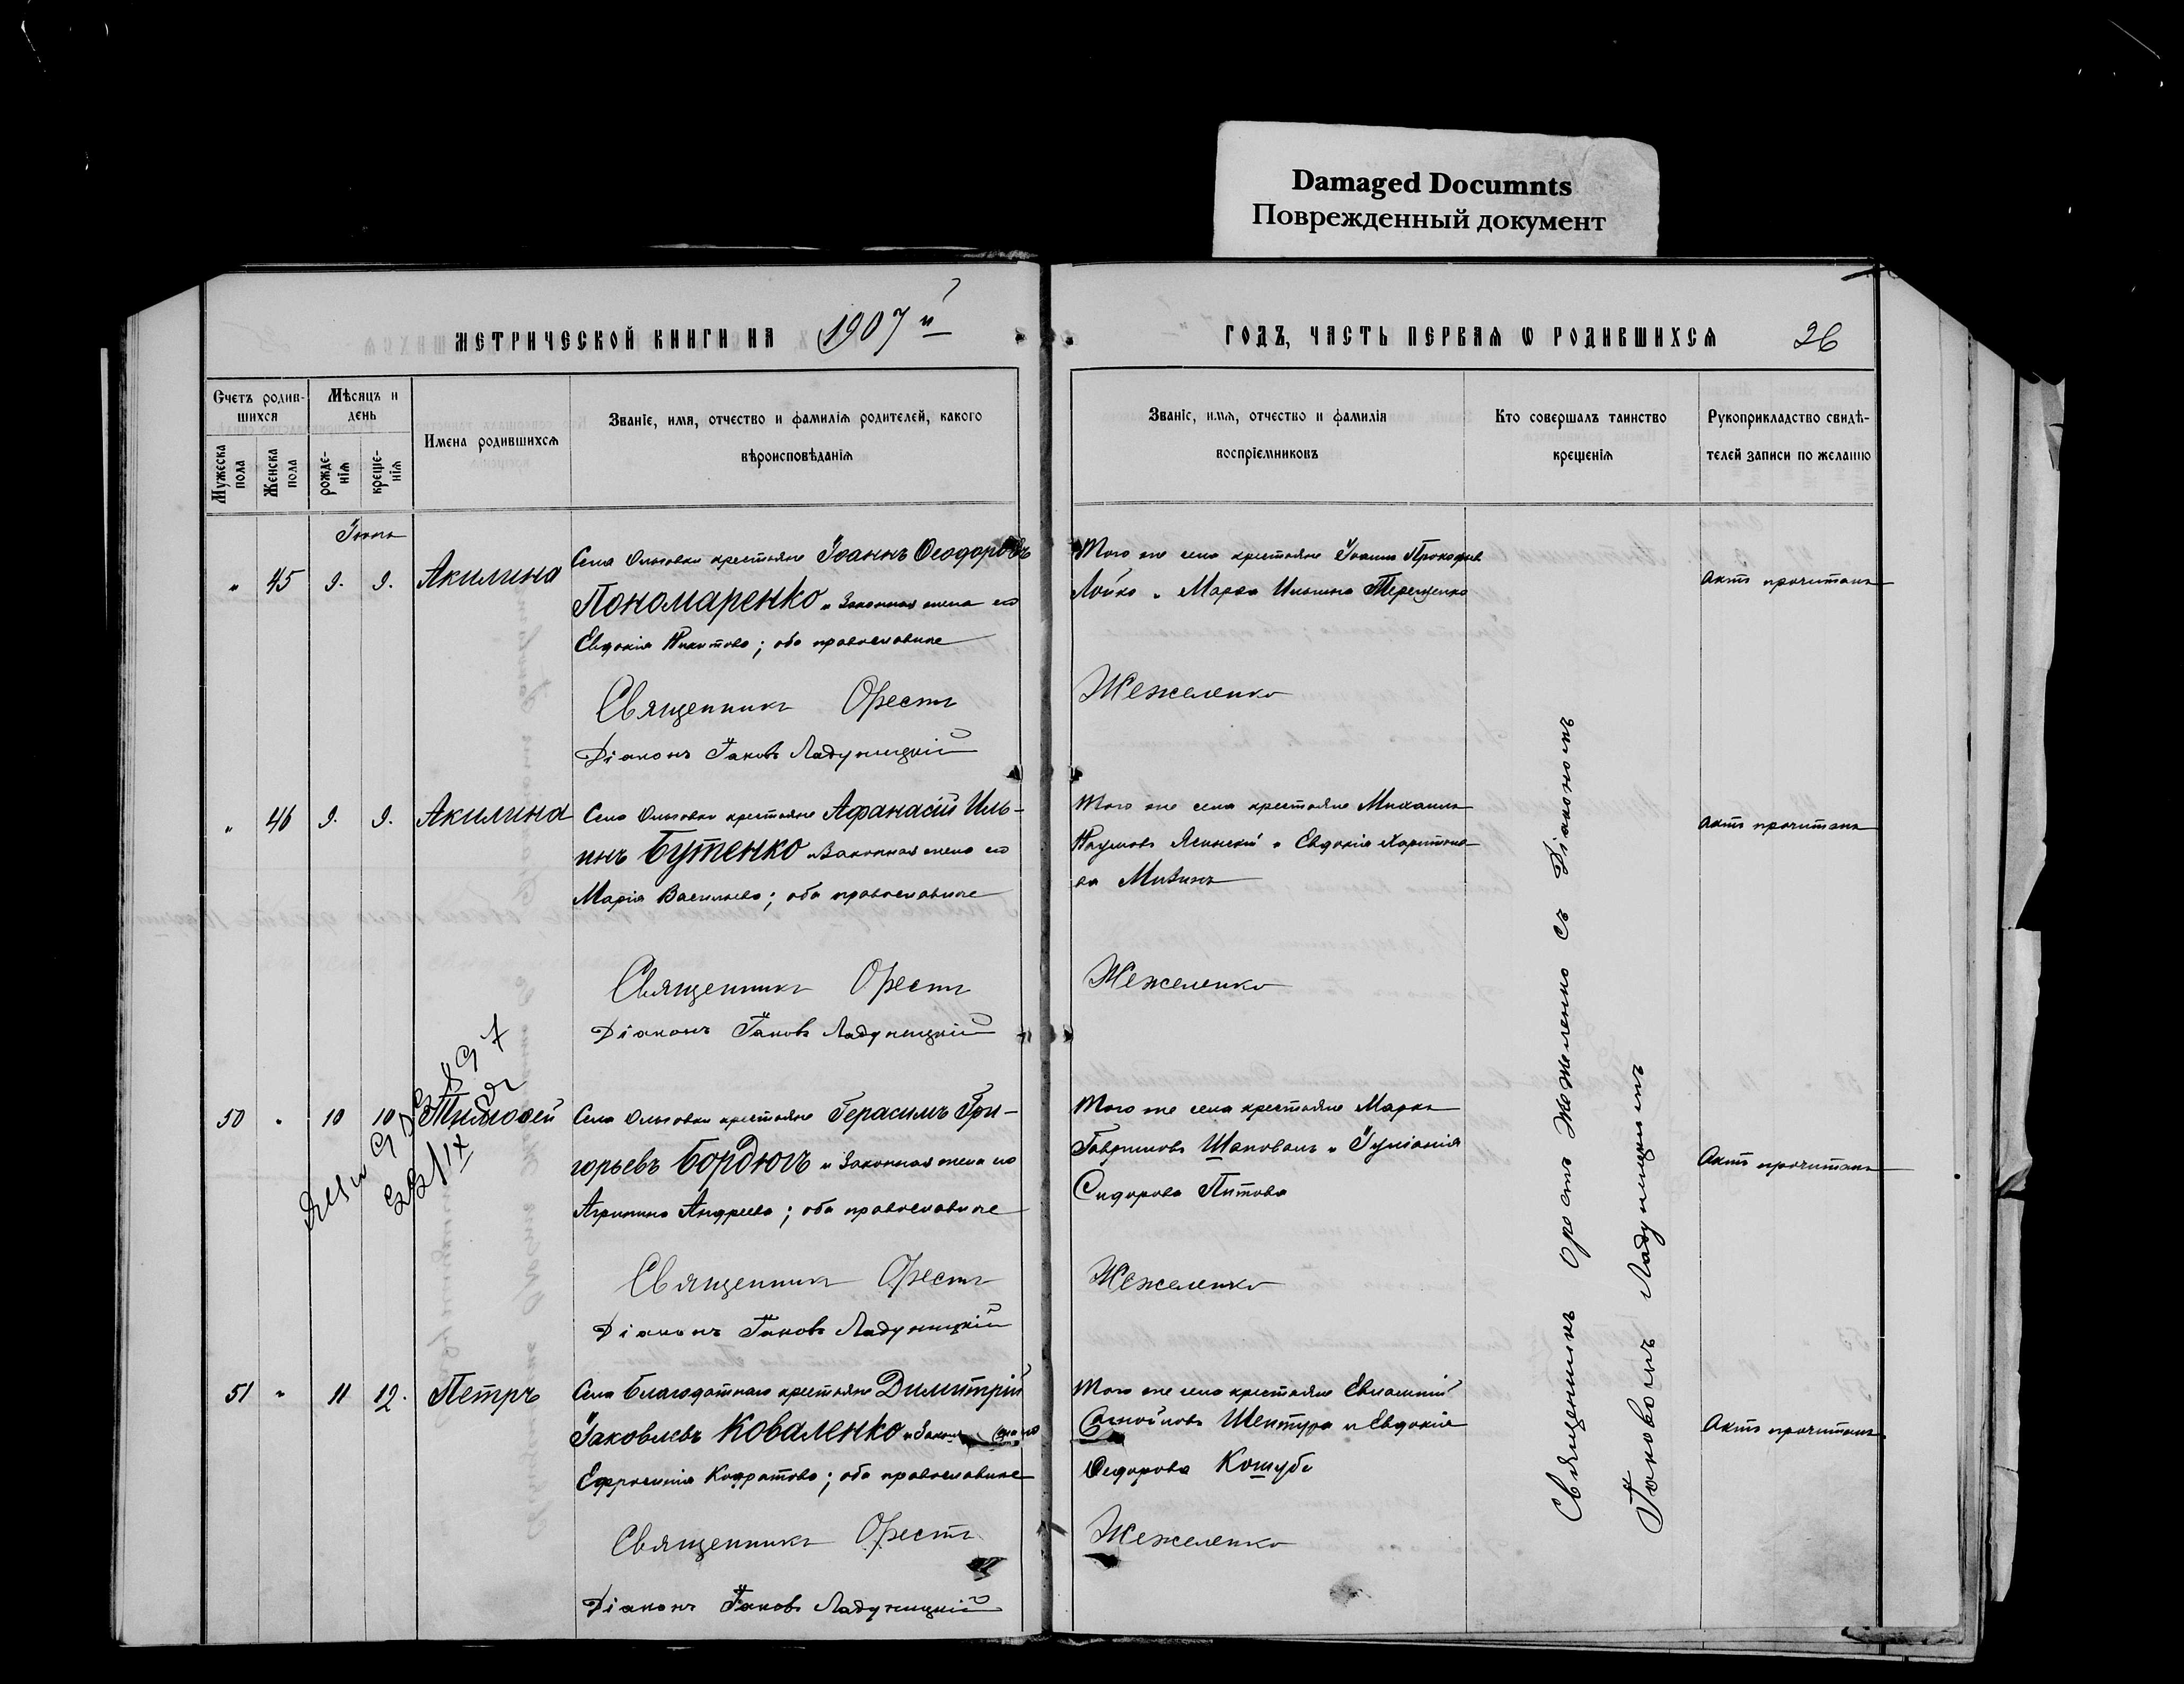 Damaged Documnts
Поврежденный документ
МЕТРИЧЕСКОЙ КНИГИ НА 1907 й
ГОДЪ, ЧАСТЬ ПЕРВАЯ Ѡ РОДИВШИХСЯ 26
Счетъ родив-
шихся
Мужеска пола
Женска пола
Мѣсяцъ и
день
рожде-
нія
креще-
нія
Имена родившихся
Званіе, имя, отчество и фамилія родителей, какого
вѣроисповѣданія
Званіе, имя, отчество и фамилія
воспріемниковъ
Кто совершалъ таинство
крещенія
Рукоприкладство свидѣ-
телей записи по желанію
" 45 9. 9. Акилина
Села крестьяне Іоаннъ Ѳеодоровъ
Пономаренко и законная жена его
Евдокія Никитова; оба православные
Священникъ Орестъ
Діаконъ Іаковъ Ладуницкій
Того же села крестьяне Іоаннъ Прокофьев
Лойко и Марѳа Ильина Терещенко
Жежеленко
Актъ прочитанъ
" 46 9. 9. Акилина
Села крестьяне Афанасій Иль-
инъ Бутенко и законная жена его
Марія Васильева; оба православные
Священникъ Орестъ
Діаконъ Іаковъ Ладуницкій
Того же села крестьяне Михаилъ
Наумовъ и Евдокія Харитоно-
ва
Жежеленко
Актъ прочитанъ
50 " 10 10 Тимоѳей
Села крестьяне Герасимъ Гри-
горьевъ Бордюгъ и законная жена его
Агрипина Андреева; оба православные
Священникъ Орестъ
Діаконъ Іаковъ Ладуницкій
Того же села крестьяне Марко
Гавриловъ Шаповалъ и Іуліанія
Сидорова
Жежеленко
Актъ прочитанъ
51 " 11 12. Петръ
Села Благодатнаго крестьяне Димитрій
Іаковлевъ Коваленко и жена его
Ефросинія Кодратова; оба православные
Священникъ Орестъ
Діаконъ Іаковъ Ладуницкій
Того же села крестьяне
Самойловъ Шептура и Евдокія
Ѳедорова
Жежеленко
Актъ прочитанъ
Священникъ Орестъ Жежеленко съ Діакономъ
Іаковомъ Ладуницкимъ